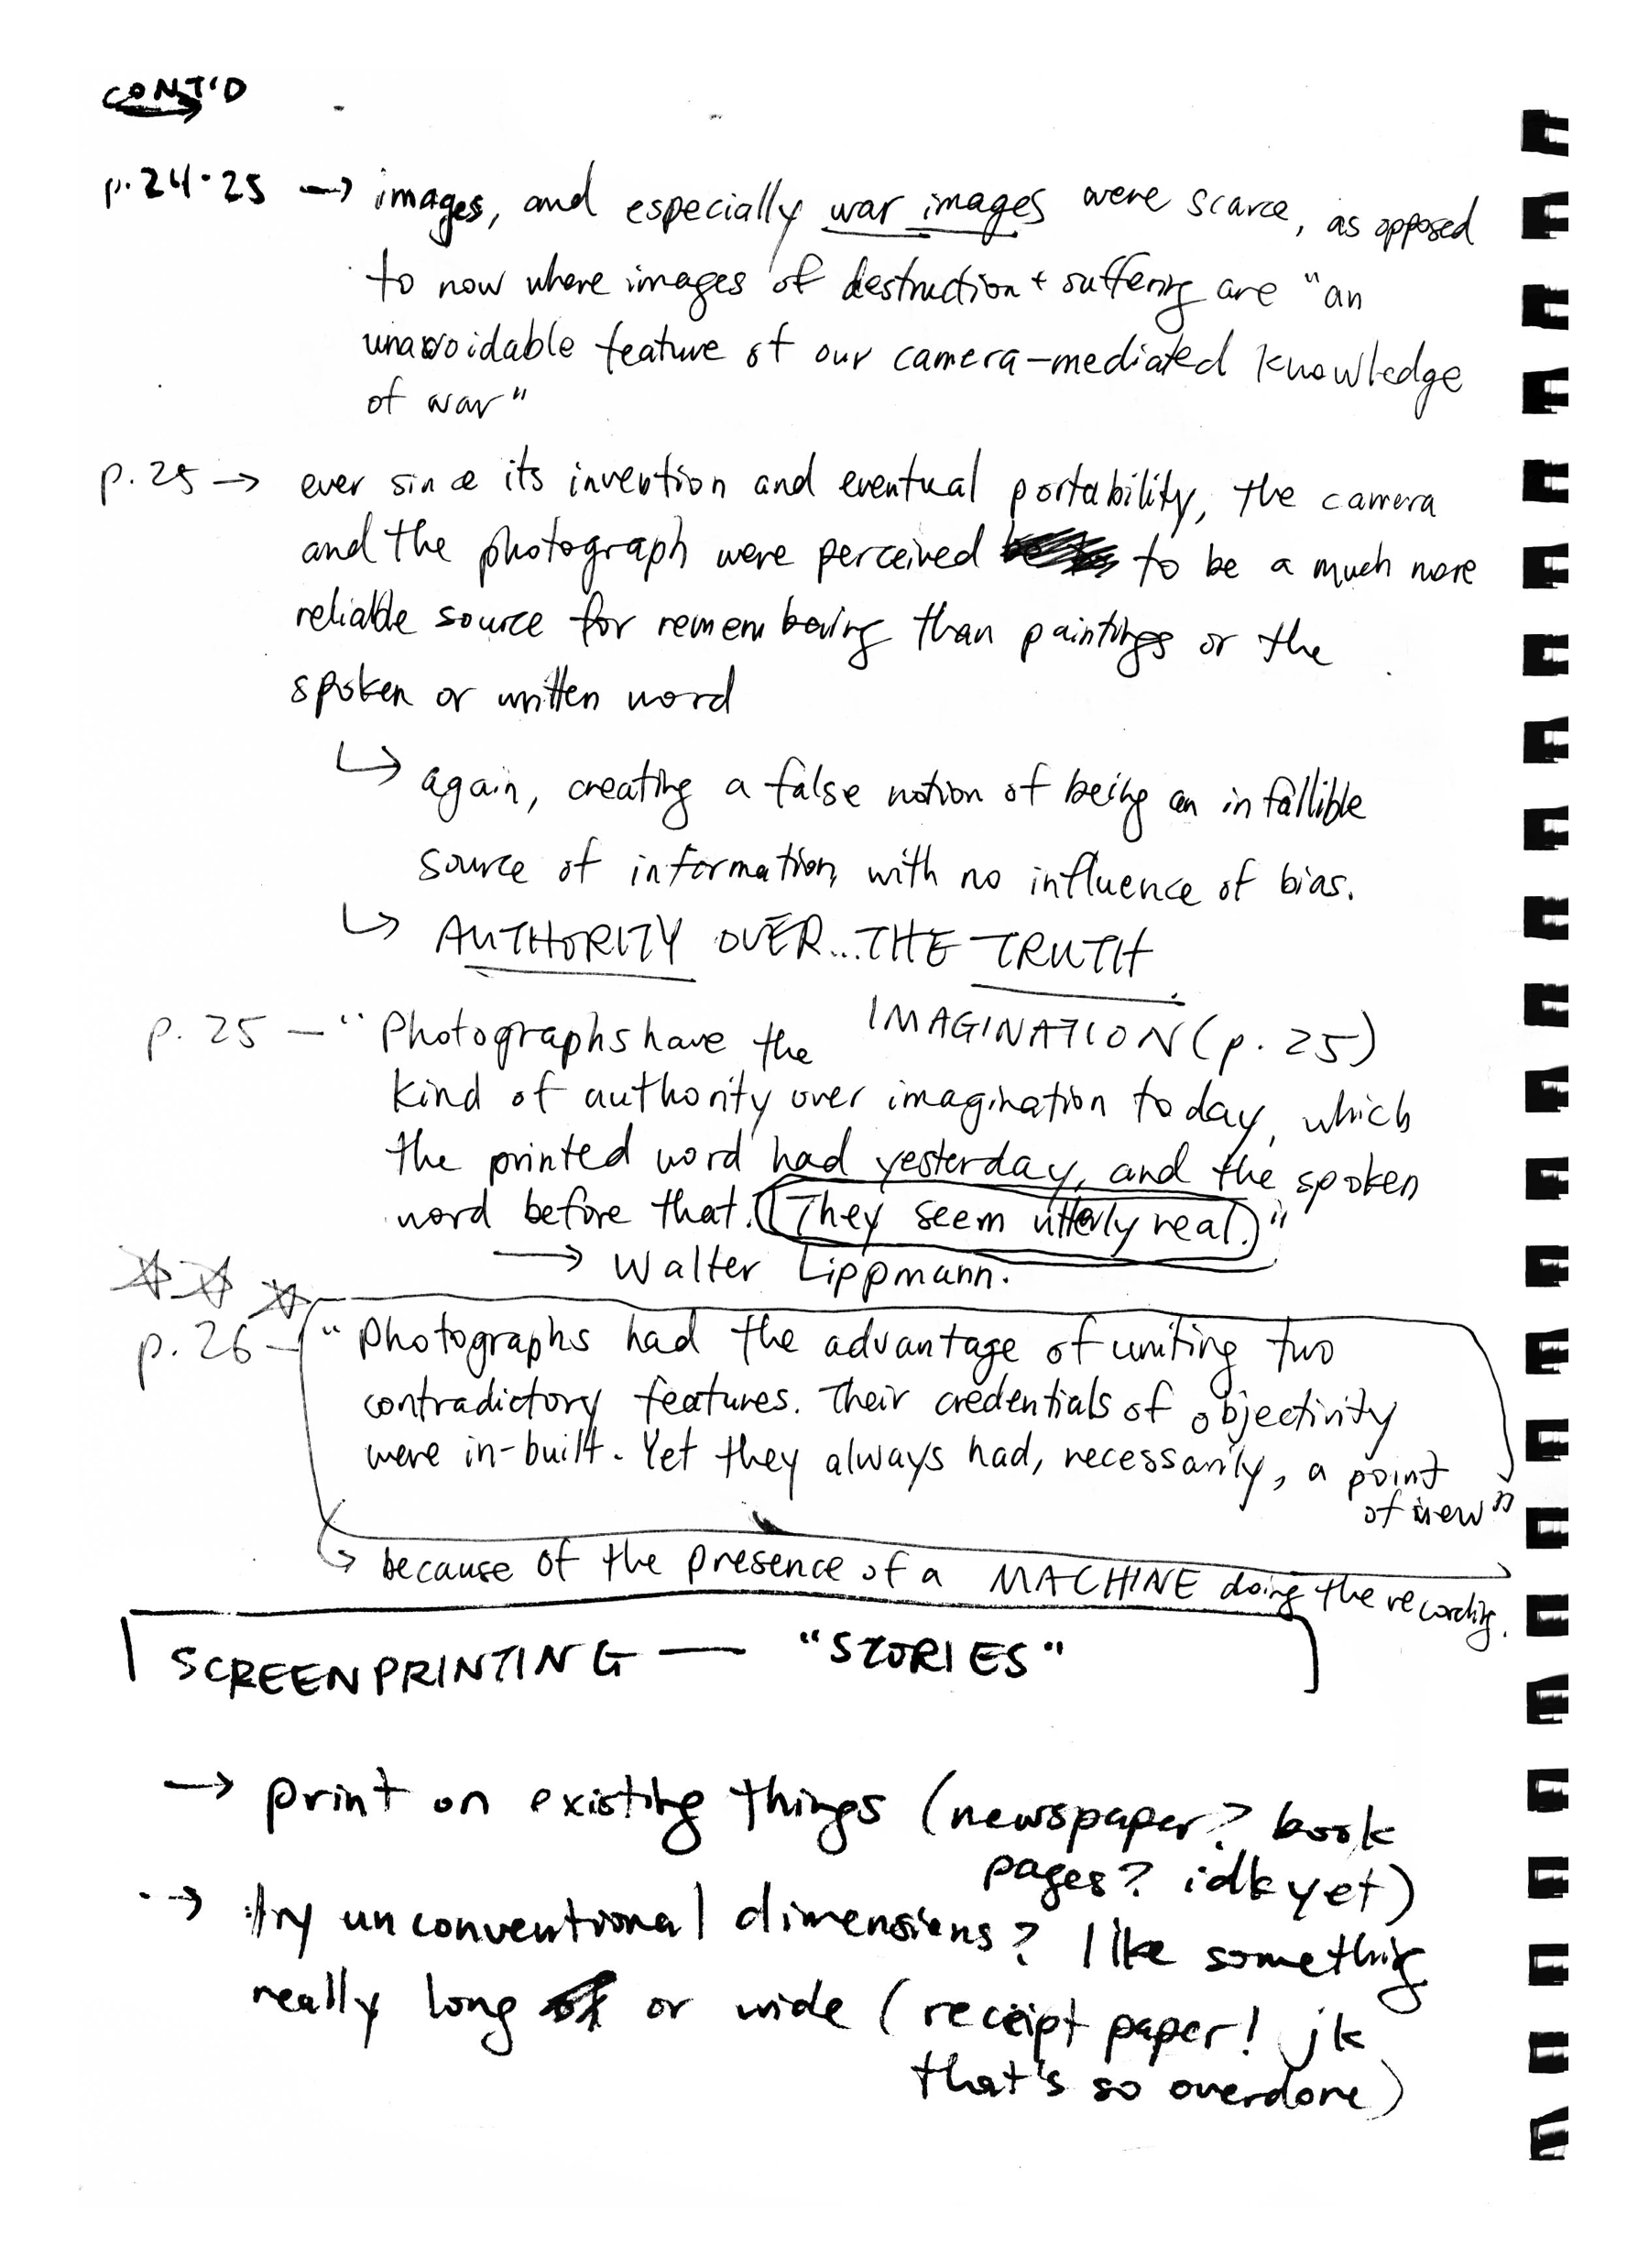 CONT'D
p. 24-25 → images, and especially war images were scarce, as opposed
to now where images of destruction + suffering are "an
unavoidable feature of our camera-mediated knowledge
of war"
p. 25 → ever since its invention and eventual portability, the camera
and the photograph were perceived to be a much more
reliable source for remembering than paintings or the
spoken or written word
↳ again, creating a false notion of being an infallible
source of information, with no influence of bias.
↳ AUTHORITY OVER...THE TRUTH
IMAGINATION (p. 25)
p. 25 — "Photographs have the
kind of authority over imagination today, which
the printed word had yesterday, and the spoken
word before that. They seem utterly real."
→ Walter Lippmann.
p. 26 — "Photographs had the advantage of uniting two
contradictory features. Their credentials of objectivity
were in-built. Yet they always had, necessarily, a point
of view"
↳ because of the presence of a MACHINE doing the recording.
SCREENPRINTING — "STORIES"
→ print on existing things (newspaper? book
pages? idk yet)
→ try unconventional dimensions? like something
really long or wide (receipt paper! jk
that's so overdone)